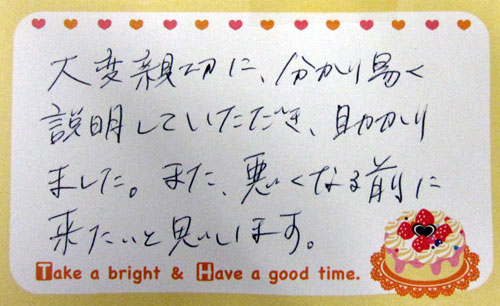 大変親切に、分かり易く
説明していただき、助かり
ました。また、悪くなる前に
来たいと思いします。
Take a bright & Have a good time.